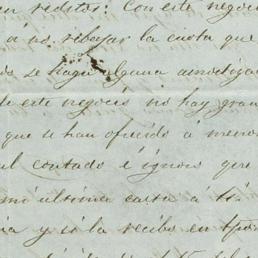 en reditar: Con este negoci
á no rebajar la cuota que
se haga alguna amortiza
de este negocio no hay gran
que se han ofrecido á menos
al contado é ignoro que
mi ultima carta á ti
ia y si la recibo en tpo